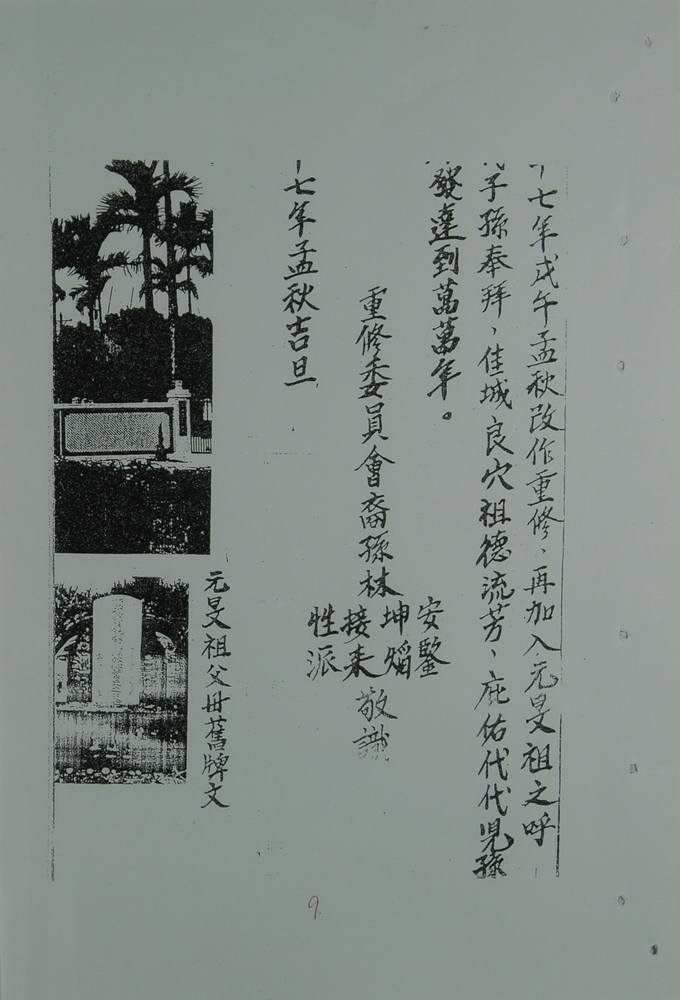 十七年戊午孟秋改作重修、再加入元旻祖之呼
子孫奉拜，佳城良穴祖德流芳、庇佑代代児孫
發達到萬萬年。
重修委員會裔孫林
安鋻
坤熖
接来
牲派
敬識
十七年孟秋吉旦
元旻祖父毌舊牌文
9.